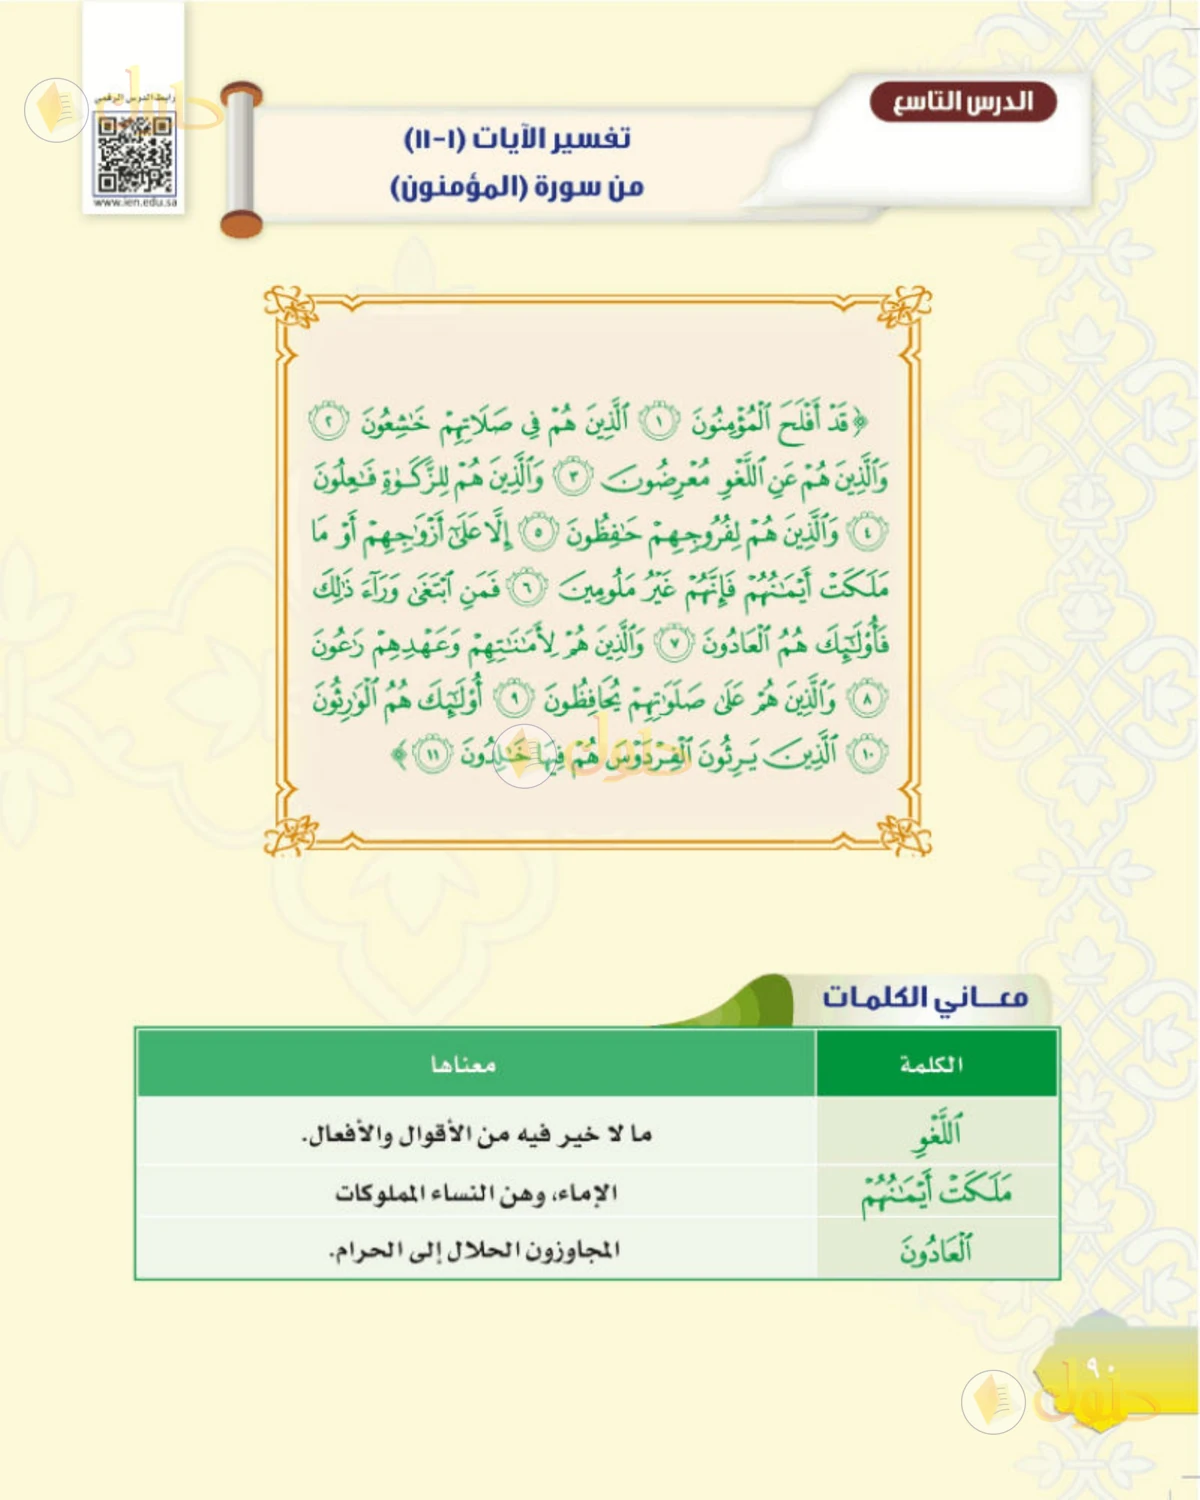 الدرس التاسع
رابط الدرس الرقمي
www.ien.edu.sa
تفسير الآيات (١-١١)
من سورة (المؤمنون)
﴿قَدْ أَفْلَحَ ٱلْمُؤْمِنُونَ ١ ٱلَّذِينَ هُمْ فِي صَلَاتِهِمْ خَٰشِعُونَ ٢
وَٱلَّذِينَ هُمْ عَنِ ٱللَّغْوِ مُعْرِضُونَ ٣ وَٱلَّذِينَ هُمْ لِلزَّكَوٰةِ فَٰعِلُونَ
٤ وَٱلَّذِينَ هُمْ لِفُرُوجِهِمْ حَٰفِظُونَ ٥ إِلَّا عَلَىٰٓ أَزْوَٰجِهِمْ أَوْ مَا
مَلَكَتْ أَيْمَٰنُهُمْ فَإِنَّهُمْ غَيْرُ مَلُومِينَ ٦ فَمَنِ ٱبْتَغَىٰ وَرَآءَ ذَٰلِكَ
فَأُو۟لَٰٓئِكَ هُمُ ٱلْعَادُونَ ٧ وَٱلَّذِينَ هُمْ لِأَمَٰنَٰتِهِمْ وَعَهْدِهِمْ رَٰعُونَ
٨ وَٱلَّذِينَ هُمْ عَلَىٰ صَلَوَٰتِهِمْ يُحَافِظُونَ ٩ أُو۟لَٰٓئِكَ هُمُ ٱلْوَٰرِثُونَ
١٠ ٱلَّذِينَ يَرِثُونَ ٱلْفِرْدَوْسَ هُمْ فِيهَا خَٰلِدُونَ ١١﴾
معـــاني الكلمـات
الكلمة معناها
ٱللَّغْوِ ما لا خير فيه من الأقوال والأفعال.
مَلَكَتْ أَيْمَٰنُهُمْ الإماء، وهن النساء المملوكات
ٱلْعَادُونَ المجاوزون الحلال إلى الحرام.
٩٠
حلول
حلول
حلول